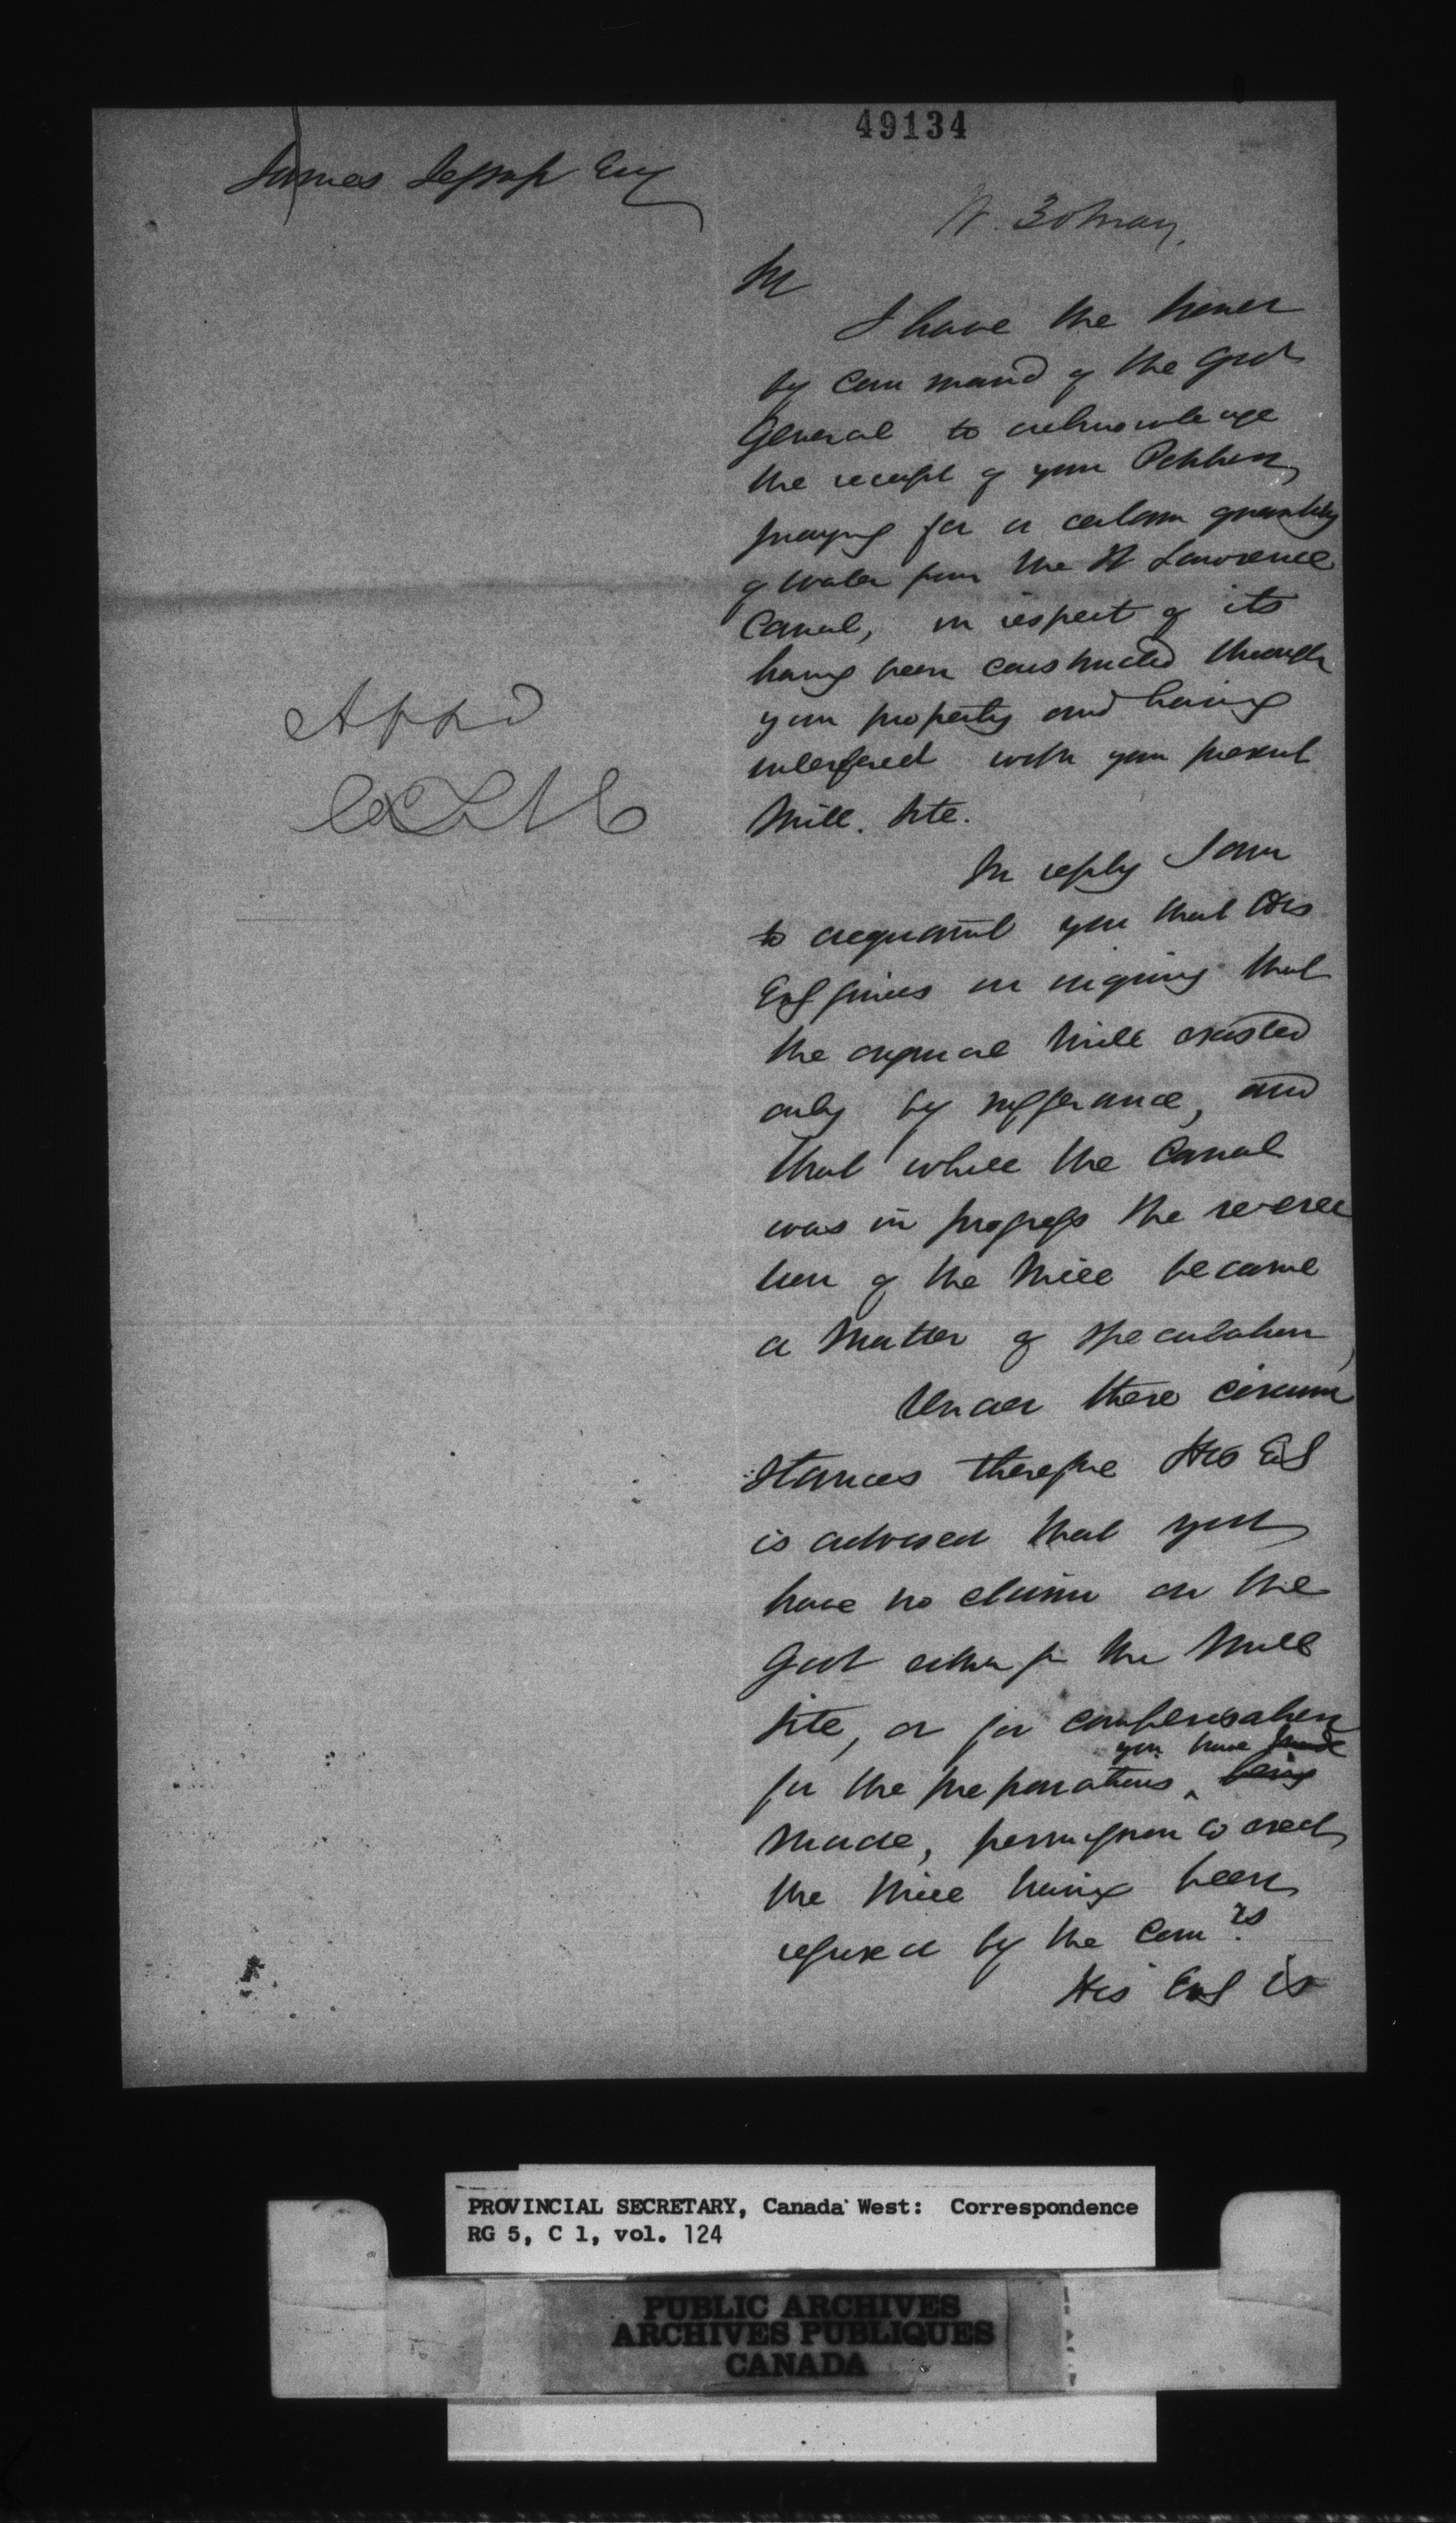 49134
James Jessup Esq
30 May
I have the honor
by command of the Govr
General to acknowledge
the receipt of your Petition
praying for a certain quantity
of water from the St Lawrence
Canal, in respect of its
having been constructed through
your property and having
interfered with your present
Mill. Site.
In reply I am
to acquaint you that His
Exy finds on inquiry that
the original Mill existed
only by sufferance, and
that while the Canal
was in progress the reerec
tion of the Mill became
a matter of speculation,
Under these circum
stances therefore His Exy
is advised that you
have no claim on the
Govt either for the Mill
Site, or for compensation
you have made
for the preparations being
made, permission to erect
the Mill having been
refused by the Comrs.
His Exy is
Appd
PROVINCIAL SECRETARY, Canada West: Correspondence
RG 5, C 1, vol. 124
PUBLIC ARCHIVES
ARCHIVES PUBLIQUES
CANADA